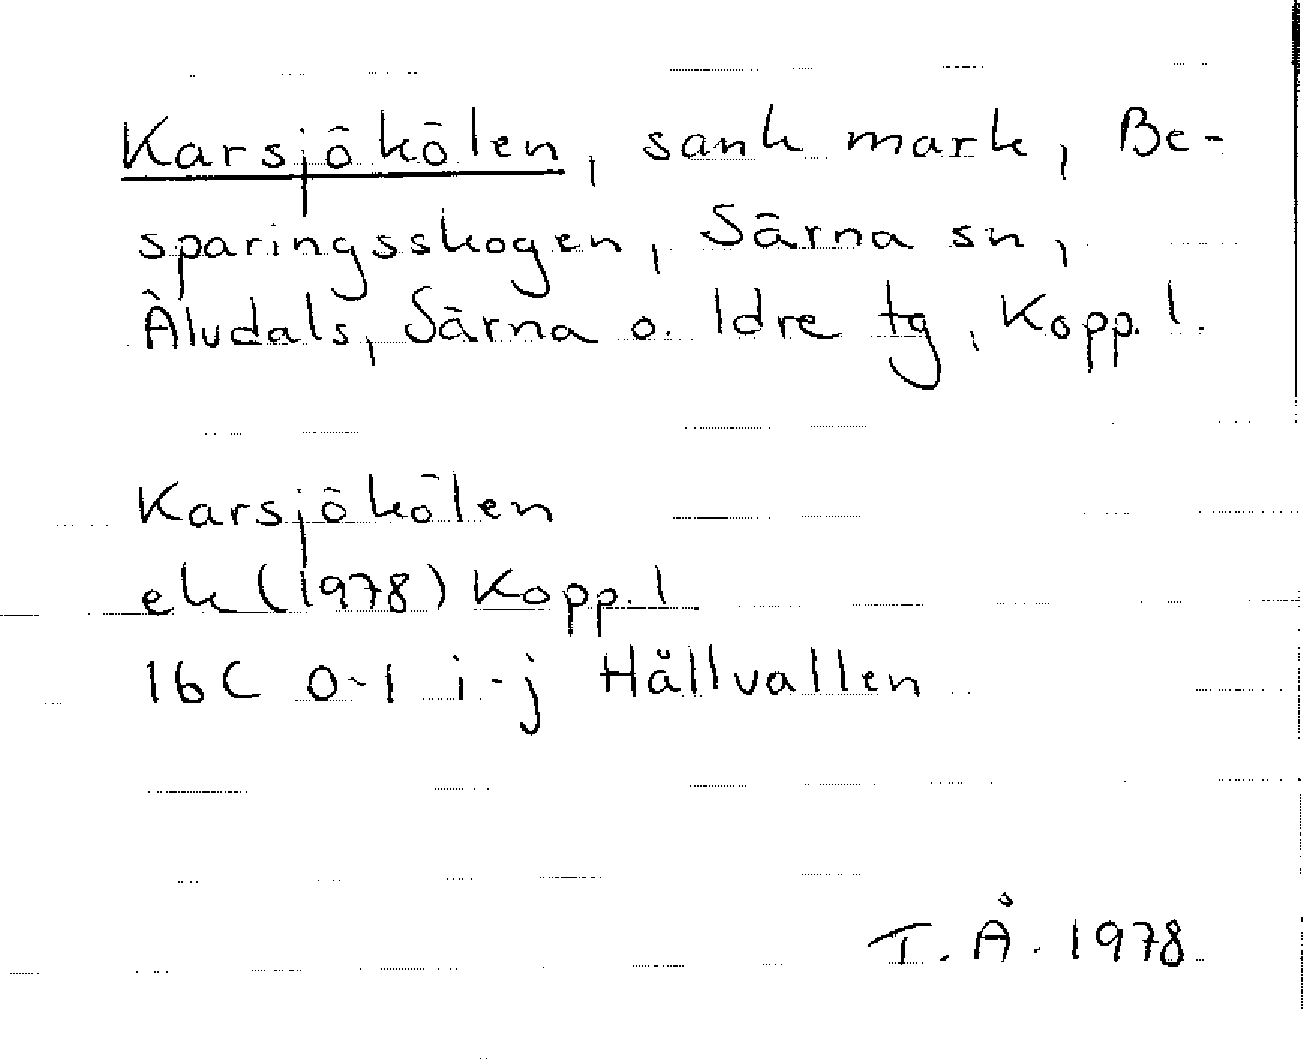 Karsjökölen, sank mark, Be-
sparingsskogen, Särna sn,
Älvdals, Särna o. Idre tg, Kopp. l.
Karsjökölen
ek (1978) Kopp. l
16C 0-1 i-j Hållvallen
T. Å. 1978